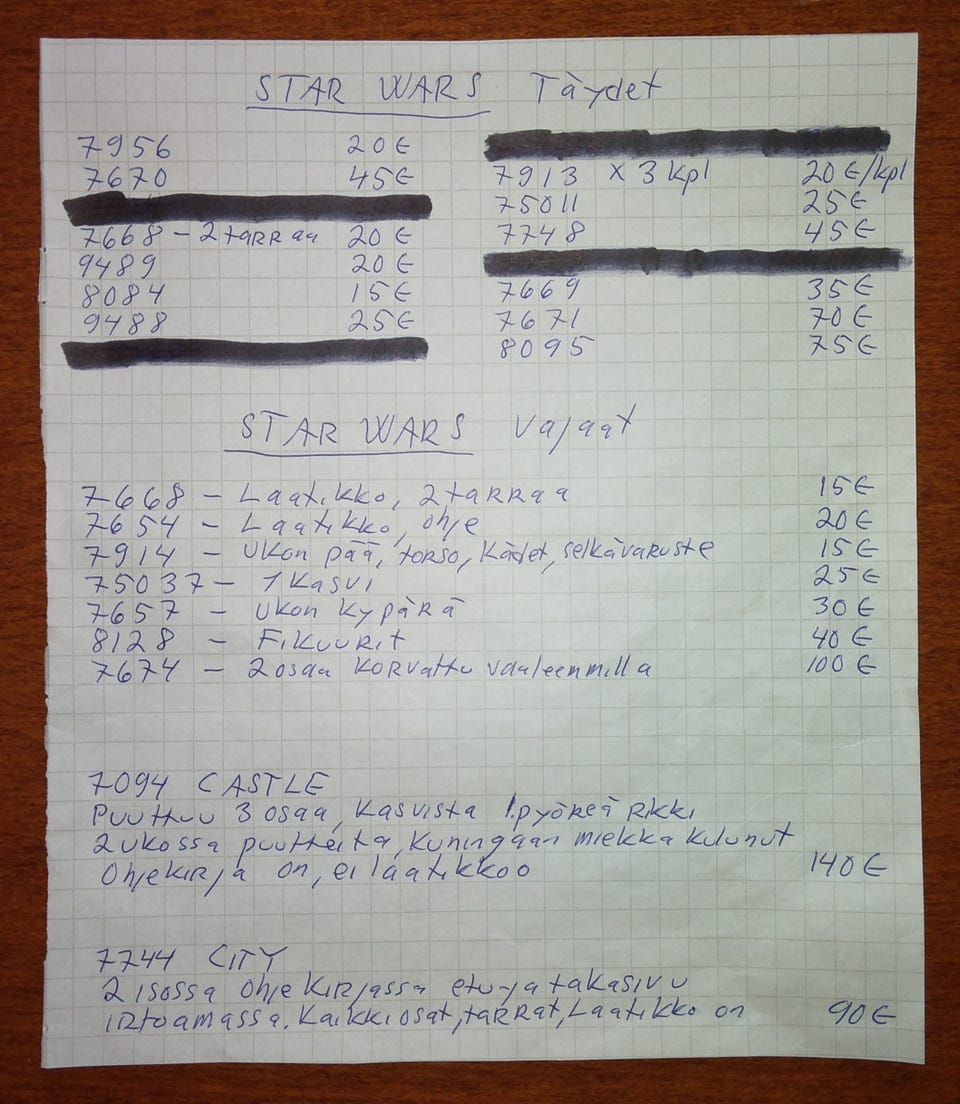 STAR WARS Täydet
7956 20€
7670 45€
7668 - 2 tarraa 20€
9489 20€
8084 15€
9488 25€
7913 x 3 kpl 20€/kpl
75011 25€
7748 45€
7669 35€
7671 70€
8095 75€
STAR WARS Vajaat
7668 - Laatikko, 2 tarraa 15€
7654 - Laatikko, ohje 20€
7914 - Ukon pää, torso, kädet, selkävaruste 15€
75037 - 1 kasvi 25€
7657 - Ukon kypärä 30€
8128 - Fikuurit 40€
7674 - 2 osaa korvattu vaaleemmilla 100€
7094 CASTLE
Puuttuu 3 osaa, kasvista 1.pyöreä rikki
2 ukossa puutteita, kuningaan miekka kulunut
Ohjekirja on, ei laatikkoo 140€
7744 CITY
2 isossa ohjekirjassa etu-ja takasivu
irtoamassa. Kaikki osat, tarrat, Laatikko on 90€